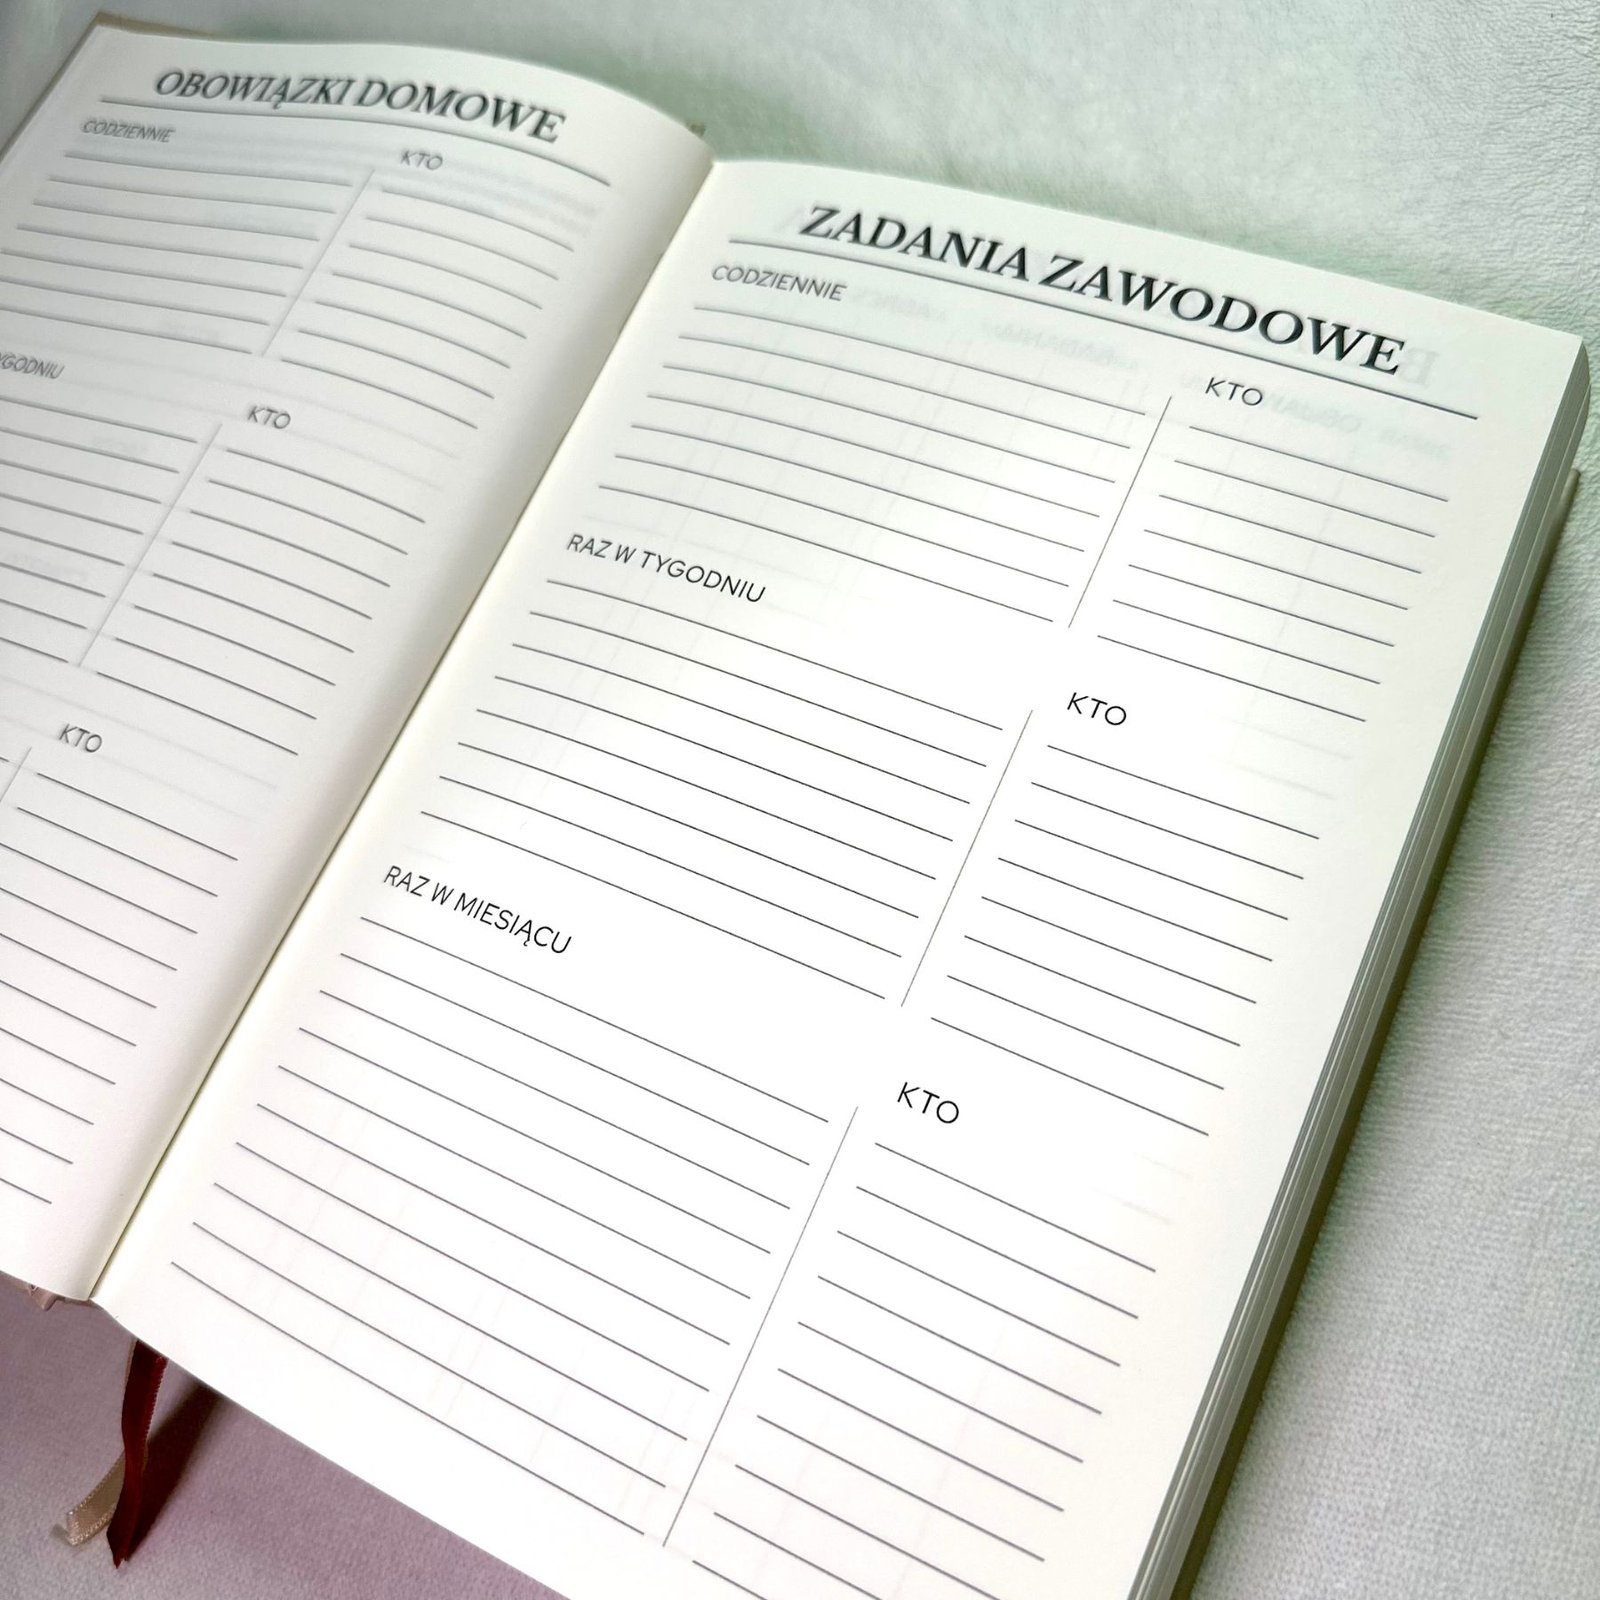 OBOWIĄZKI DOMOWE
CODZIENNIE
KTO
TYGODNIU
KTO
KTO
ZADANIA ZAWODOWE
CODZIENNIE
KTO
RAZ W TYGODNIU
KTO
RAZ W MIESIĄCU
KTO